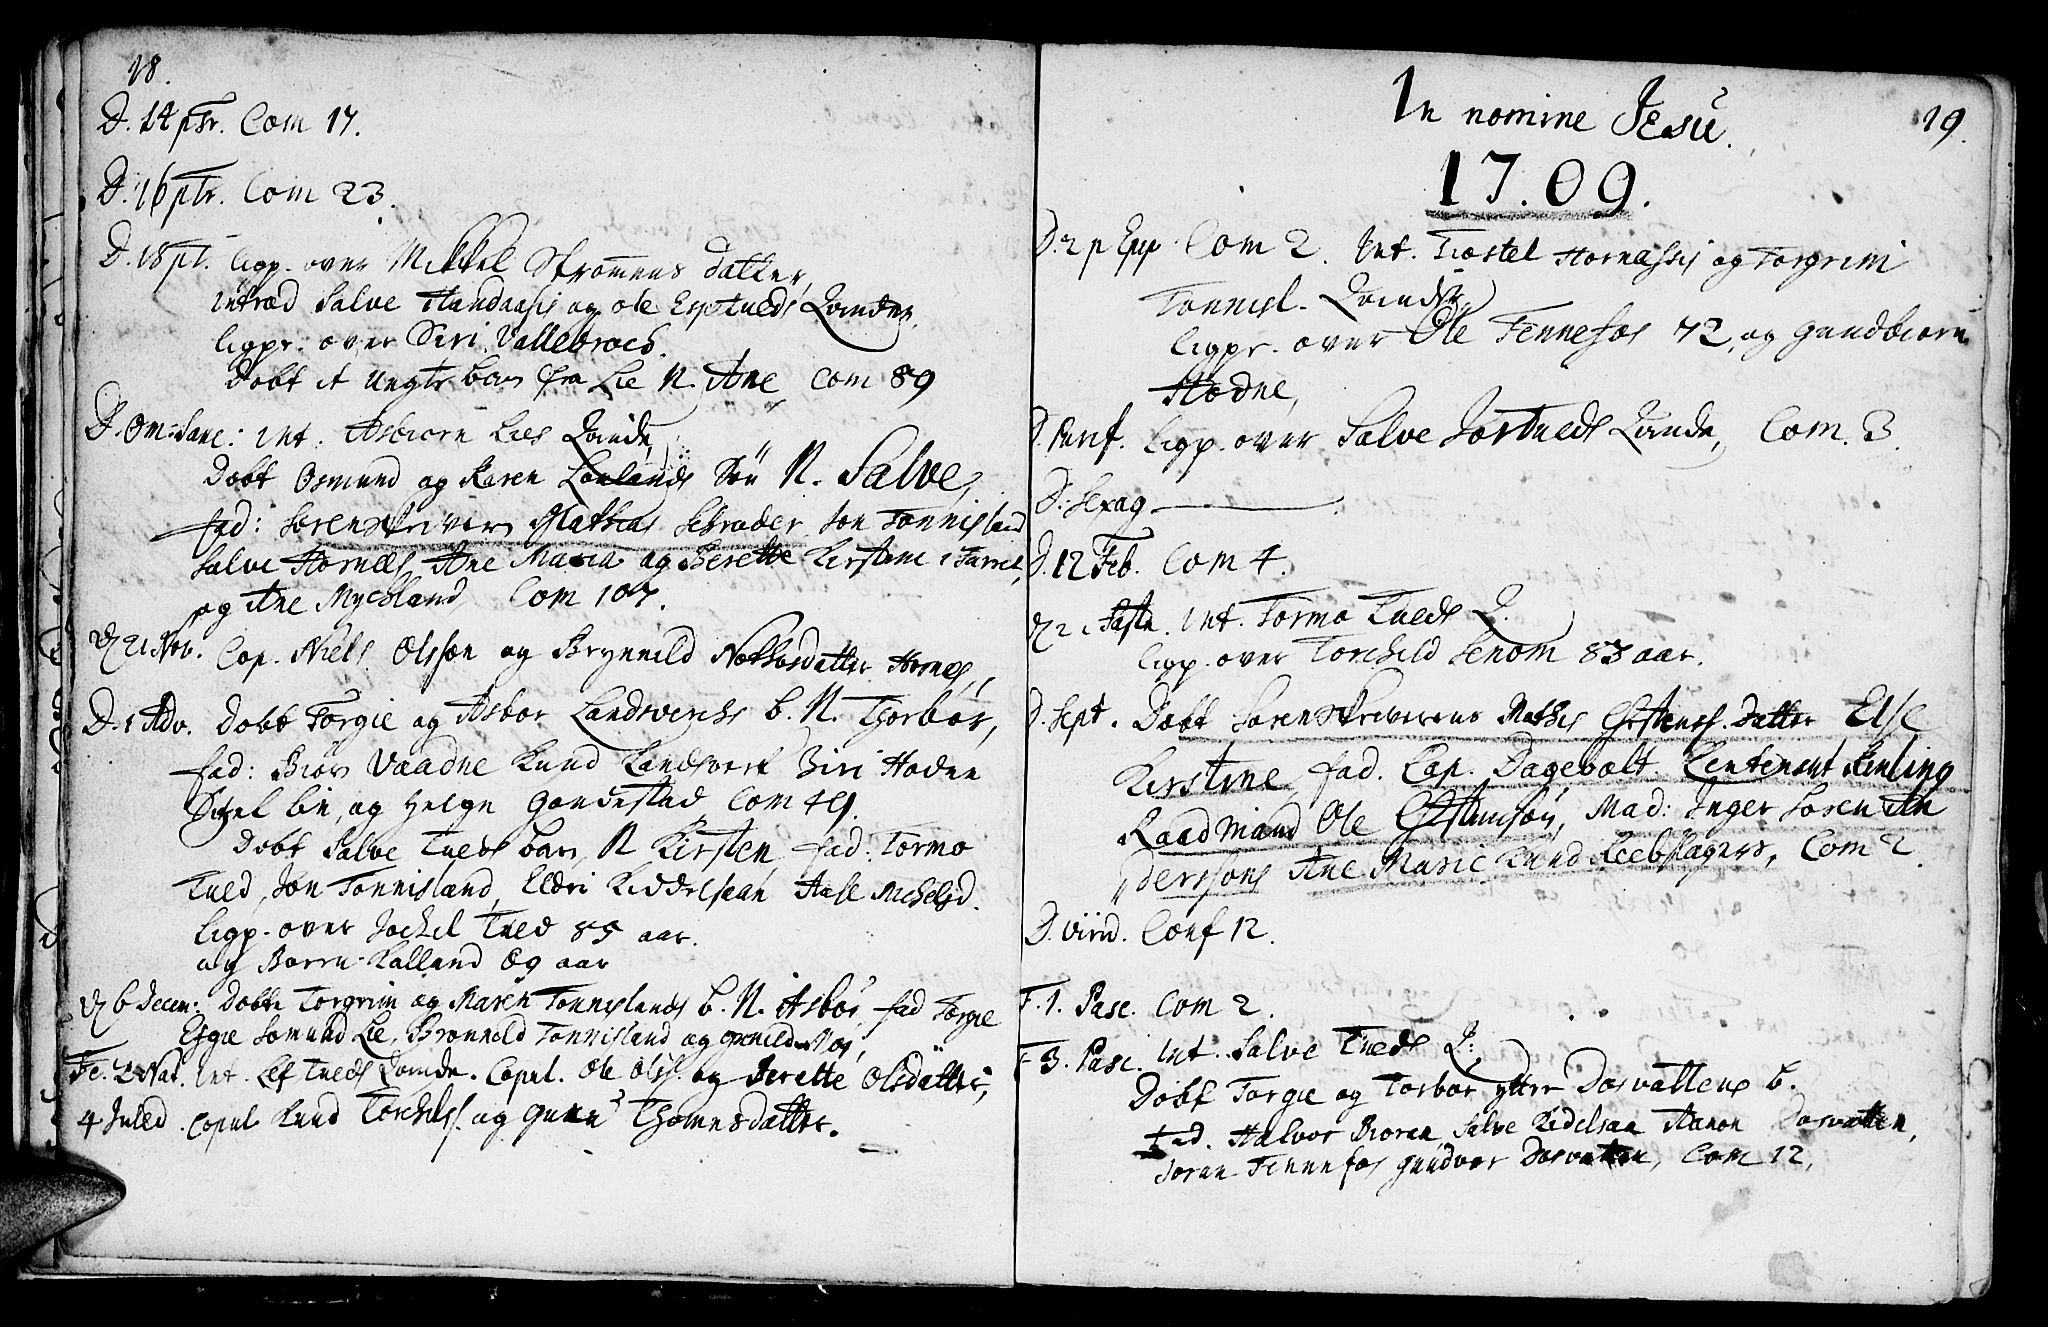 18.
D. 14 ptr. Com 17.
D. 16 ptr. Com 23.
D. 18 pt. ligp. over Mikkel Strømmens datter,
introd Salve Handaasis og Ole Espetveds Qvinder.
ligpr. over Siri Vallebroes.
Dobt it Ungtr barn fra Lie N. Ane, Com 89
D. Om: Sanc: int. Asbiorn Lies Qvinde,
Dobt Osmund og Karen Lonlands Søn N. Salve,
fad: Sorenskriveren Mathias Schrøder Jon Tonnisland
Salve Hornes, Ane Maria og Berette Kirstine i Farret,
og Ane Mychland, Com 107.
D 21 Nov. Cop. Niels Olssøn og Brynnild Notkasdatter Hornes,
D. 1 Adv. Dobt Torgie og Asbor Landsverchs b. N. Thorbor,
fad: Biør Vaadne Knud Landsverk Biri Hodne
Sitzel lin, og Helge Gondestad Com 49.
Dobt Salve Tveds barn, N Kirsten, fad: Tormo
Tved, Jon Tonnisland, Eldri Kiddelsaan Aase Michelsd.
ligp. over Jochel Tved 85 aar.
og Borre Kalland 69 aar
D 6 Decem: Dobte Torgrim og Maren Tonnislands b. N. Asbor, fad Torgie
Esgie Somund Lie, Bronnild Tonnisland og Gunild Moi,
Fe. 2 Nat. int. Lef Tveds Qvinde. Copul. Ole Olss. og Berette Olsdatter,
4 Juled. Copul Knud Torchels. og Gune Thomesdatter.
In nomine Jesu. 19.
17.09.
D. 2 p Epip Com 2. Int. Tiostel Hornessis og Torgrim
Tonnisl. Qvinder,
ligpr. over Ole Fennefos 72, og Gundbiorn
Hodne,
D. Purif. ligp. over Salve Jortveds Qvinde, Com. 3.
D. Sexag
D. 12 Feb. Com 4.
D 2 i Faste. Int. Tormo Tveds Q.
ligp. over Torchild Senom 83 aar.
D. Sept. Dobt Sorenskriverens Mathis Christens. datter Else
Kirstine, fad. Cap. Dagevolt. Leutenant
Raadmand Ole Christensøn, Mad: Inger Soren An
dersons Ane Marie Knud Reebslagers, Com 2.
D. Virid. Conf 12.
F. 1. Pasc. Com 2.
F 3. Pasc. Int. Salve Tveds Q:
Dobt Torgie og Torbor ytter Dosvattens b.
Fad. Halvor Bioren, Salve Kidelsaa Aanon Dosvatten,
Joran Fennefos Gundvor Dosvatten, Com 12,